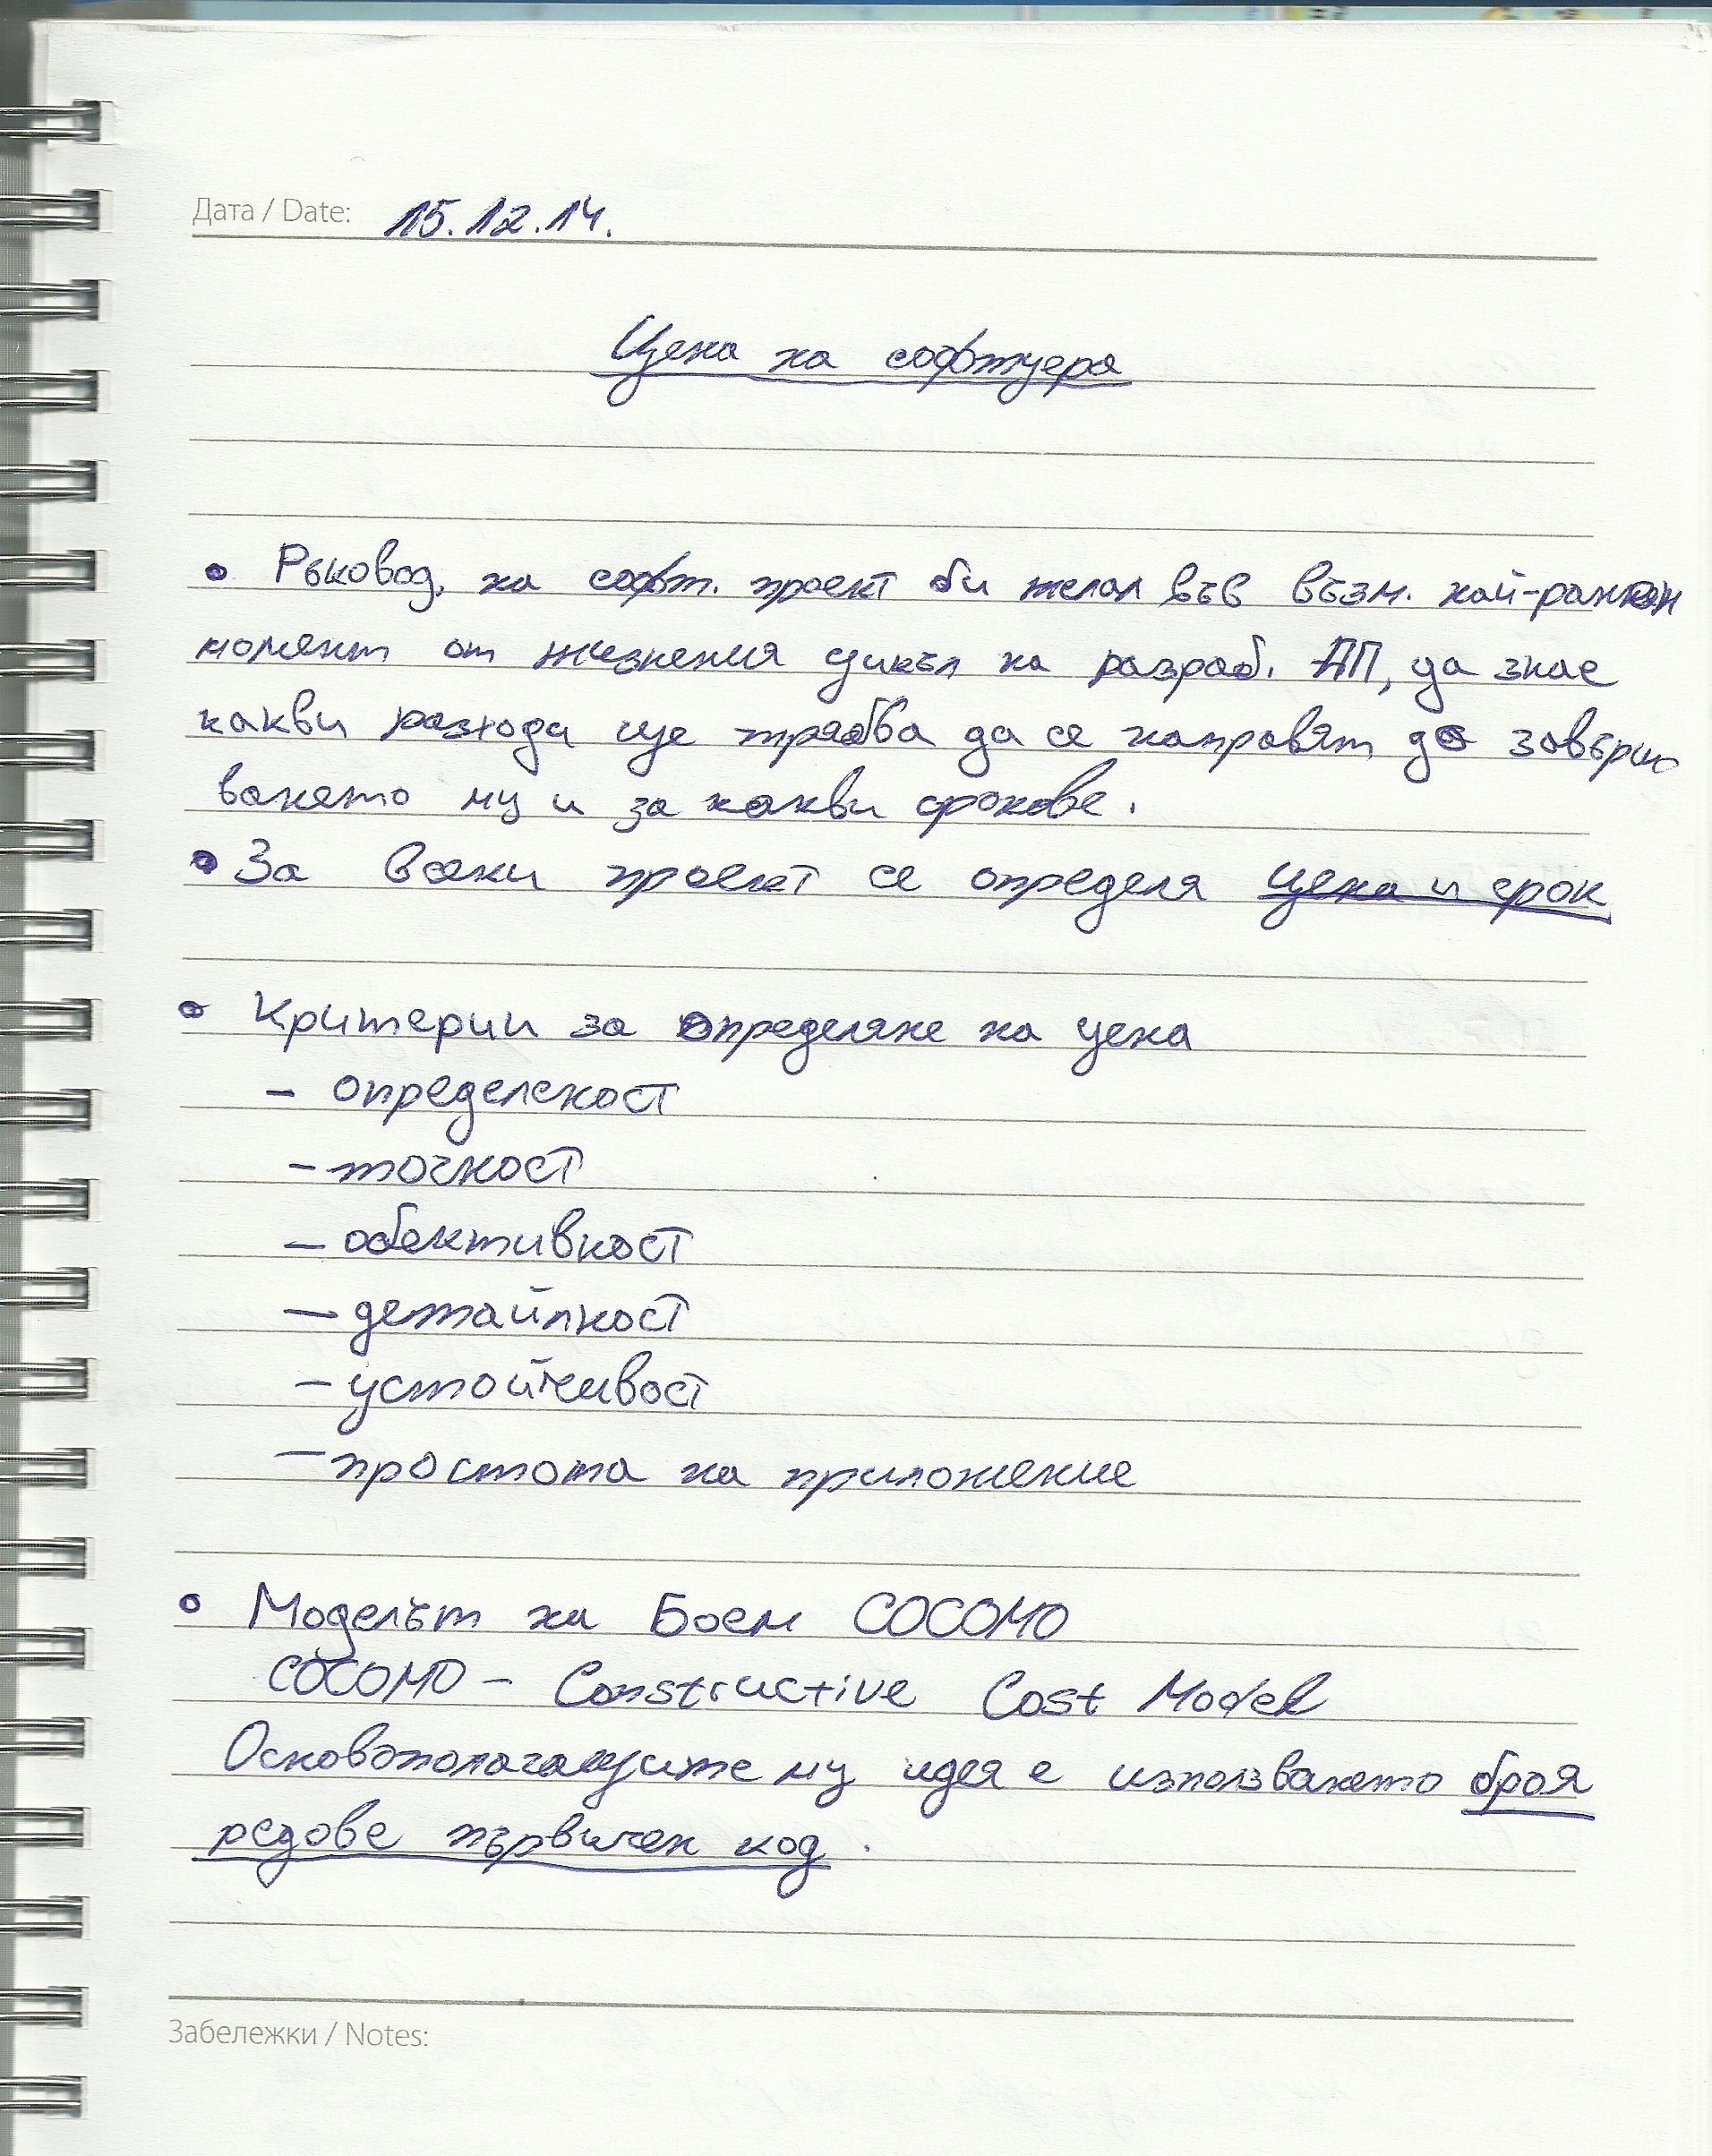 Дата / Date: 15.12.14.
Цена на софтуера
• Ръковод. на софт. проект би желал във възм. най-ранен
момент от жизнения цикъл на разраб. ПП, да знае
какви разходи ще трябва да се направят до завърш
ването му и за какви срокове.
• За всеки проект се определя цена и срок
• Критерии за определяне на цена
- определеност
- точност
- обективност
- детайлност
- устойчивост
- простота на приложение
• Моделът на Боем COCOMO
COCOMO - Constructive Cost Model
Основополагащите му идея е използването броя
редове първичен код.
Забележки / Notes: